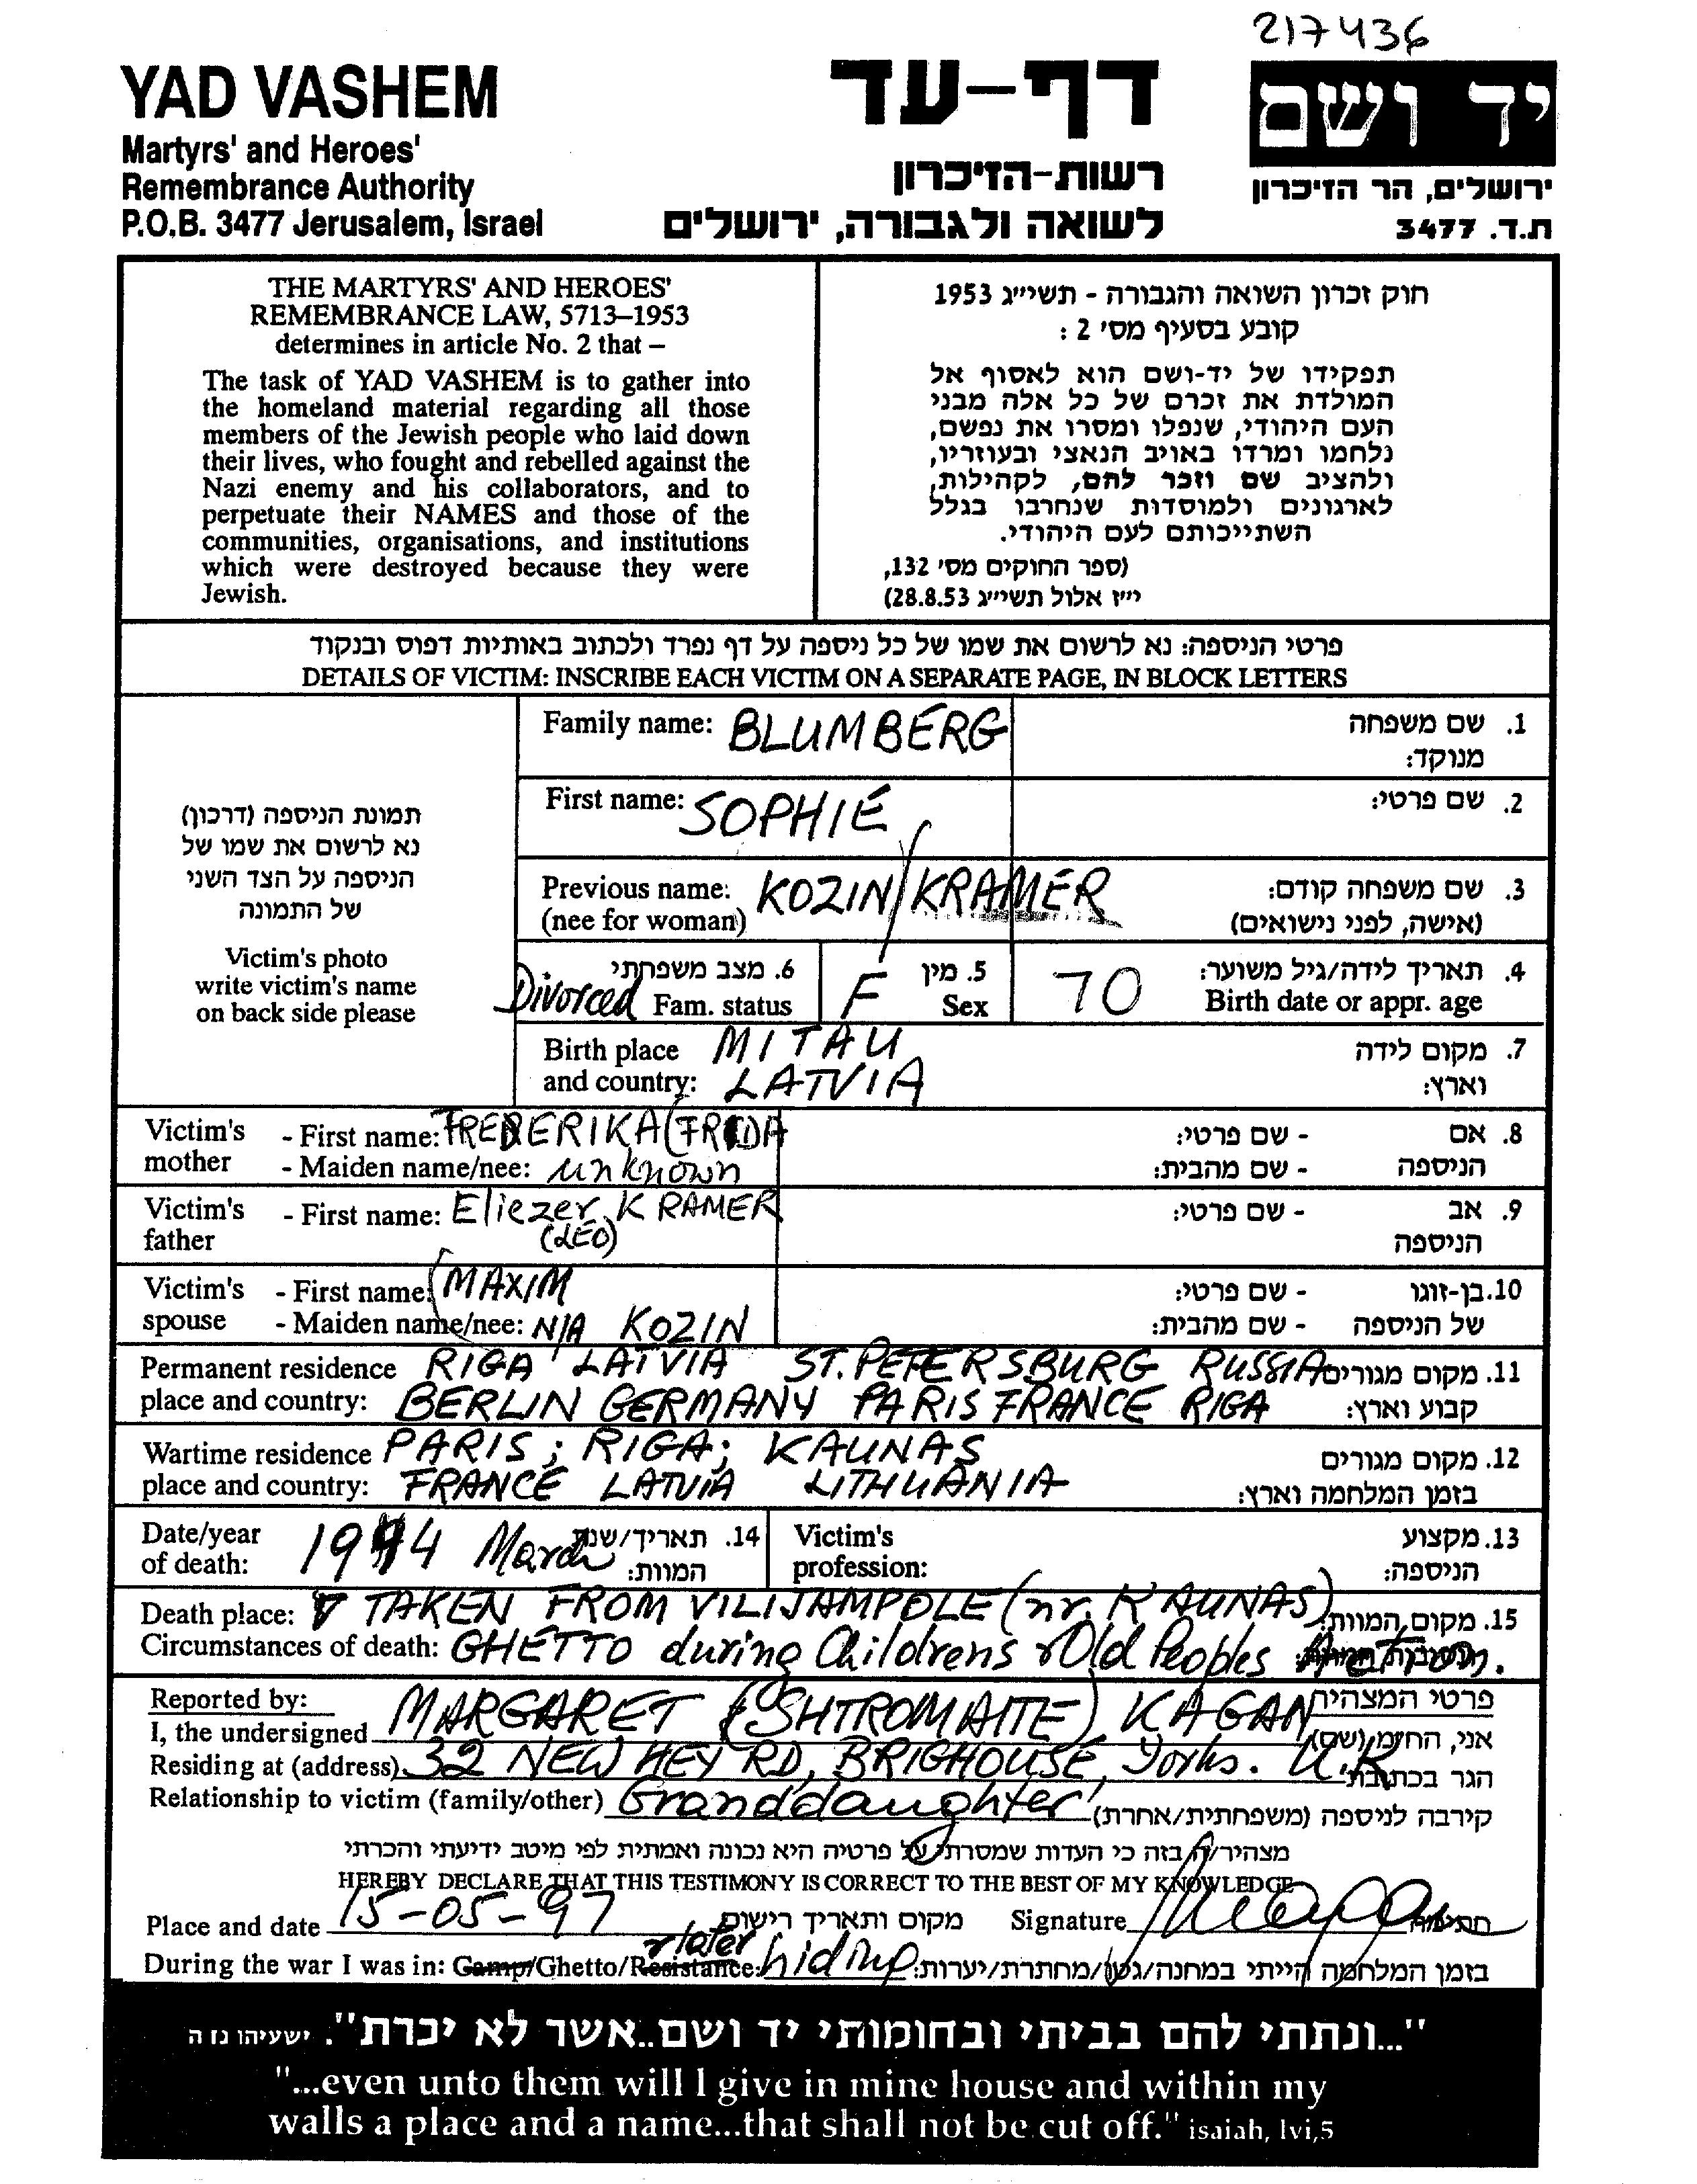 217436
YAD VASHEM
Martyrs' and Heroes'
Remembrance Authority
P.O.B. 3477 Jerusalem, Israel
דף-עד
רשות-הזיכרון
לשואה ולגבורה, ירושלים
יד ושם
ירושלים, הר הזיכרון
ת.ד. 3477
THE MARTYRS' AND HEROES'
REMEMBRANCE LAW, 5713–1953
determines in article No. 2 that –
The task of YAD VASHEM is to gather into
the homeland material regarding all those
members of the Jewish people who laid down
their lives, who fought and rebelled against the
Nazi enemy and his collaborators, and to
perpetuate their NAMES and those of the
communities, organisations, and institutions
which were destroyed because they were
Jewish.
חוק זכרון השואה והגבורה - תשי״ג 1953
קובע בסעיף מס׳ 2 :
תפקידו של יד-ושם הוא לאסוף אל
המולדת את זכרם של כל אלה מבני
העם היהודי, שנפלו ומסרו את נפשם,
נלחמו ומרדו באויב הנאצי ובעוזריו,
ולהציב שם וזכר להם, לקהילות,
לארגונים ולמוסדות שנחרבו בגלל
השתייכותם לעם היהודי.
(ספר החוקים מס׳ 132,
י״ז אלול תשי״ג 28.8.53)
פרטי הניספה: נא לרשום את שמו של כל ניספה על דף נפרד ולכתוב באותיות דפוס ובנקוד
DETAILS OF VICTIM: INSCRIBE EACH VICTIM ON A SEPARATE PAGE, IN BLOCK LETTERS
תמונת הניספה (דרכון)
נא לרשום את שמו של
הניספה על הצד השני
של התמונה
Victim's photo
write victim's name
on back side please
Family name: BLUMBERG 1. שם משפחה
מנוקד:
First name: SOPHIE 2. שם פרטי:
Previous name: KOZIN/KRAMER 3. שם משפחה קודם:
(nee for woman) (אישה, לפני נישואים)
Divorced 6. מצב משפחתי F 5. מין 70 4. תאריך לידה/גיל משוער:
Fam. status Sex Birth date or appr. age
Birth place MITAU 7. מקום לידה
and country: LATVIA וארץ:
Victim's - First name: FREDERIKA (FRIDA 8. אם - שם פרטי:
mother - Maiden name/nee: unknown הניספה - שם מהבית:
Victim's - First name: Eliezer KRAMER 9. אב - שם פרטי:
father (LEO) הניספה
Victim's - First name: MAXIM 10. בן-זוגו - שם פרטי:
spouse - Maiden name/nee: N/A KOZIN של הניספה - שם מהבית:
Permanent residence RIGA LATVIA ST. PETERSBURG RUSSIA 11. מקום מגורים
place and country: BERLIN GERMANY PARIS FRANCE RIGA קבוע וארץ:
Wartime residence PARIS; RIGA; KAUNAS 12. מקום מגורים
place and country: FRANCE LATVIA LITHUANIA בזמן המלחמה וארץ:
Date/year 1944 March 14. תאריך/שנת Victim's 13. מקצוע
of death: המוות: profession: הניספה:
Death place: TAKEN FROM VILIJAMPOLE (nr. KAUNAS) 15. מקום המוות
Circumstances of death: GHETTO during Childrens & Old Peoples Action.
Reported by: פרטי המצהיר
I, the undersigned MARGARET (SHTROMAITE) KAGAN אני, החתום (שם)
Residing at (address) 32 NEW HEY RD, BRIGHOUSE, Yorks. U.K. הגר בכתובת
Relationship to victim (family/other) Granddaughter קירבה לניספה (משפחתית/אחרת)
מצהיר/ה בזה כי העדות שמסרתי על פרטיה היא נכונה ואמתית לפי מיטב ידיעתי והכרתי
HEREBY DECLARE THAT THIS TESTIMONY IS CORRECT TO THE BEST OF MY KNOWLEDGE
Place and date 15-05-97 מקום ותאריך רישום Signature חתימה
& later
During the war I was in: Camp/Ghetto/Resistance: hiding בזמן המלחמה הייתי במחנה/גטו/מחתרת/יערות:
"...ונתתי להם בביתי ובחומותי יד ושם..אשר לא יכרת". ישעיהו נז ה
"...even unto them will I give in mine house and within my
walls a place and a name...that shall not be cut off." isaiah, lvi,5